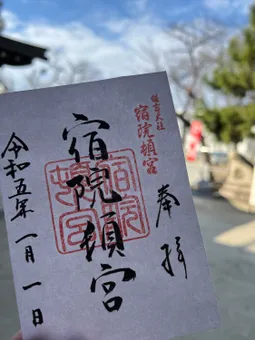 奉拝
住吉大社
宿院頓宮
宿院頓宮
宿院頓宮
令和五年一月一日